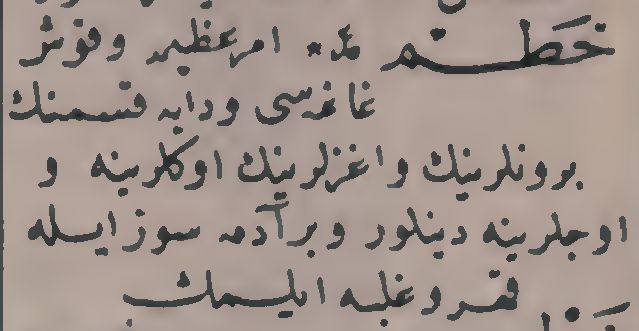 خَطْم ع* امر عظيم وقوش
غاغه‌سی ودابه قسمنك
بورونلرينك واغزلرينك اوكلرينه و
اوجلرينه دينلور وبر آدمه سوز ايله
قهر وغلبه ايلمك